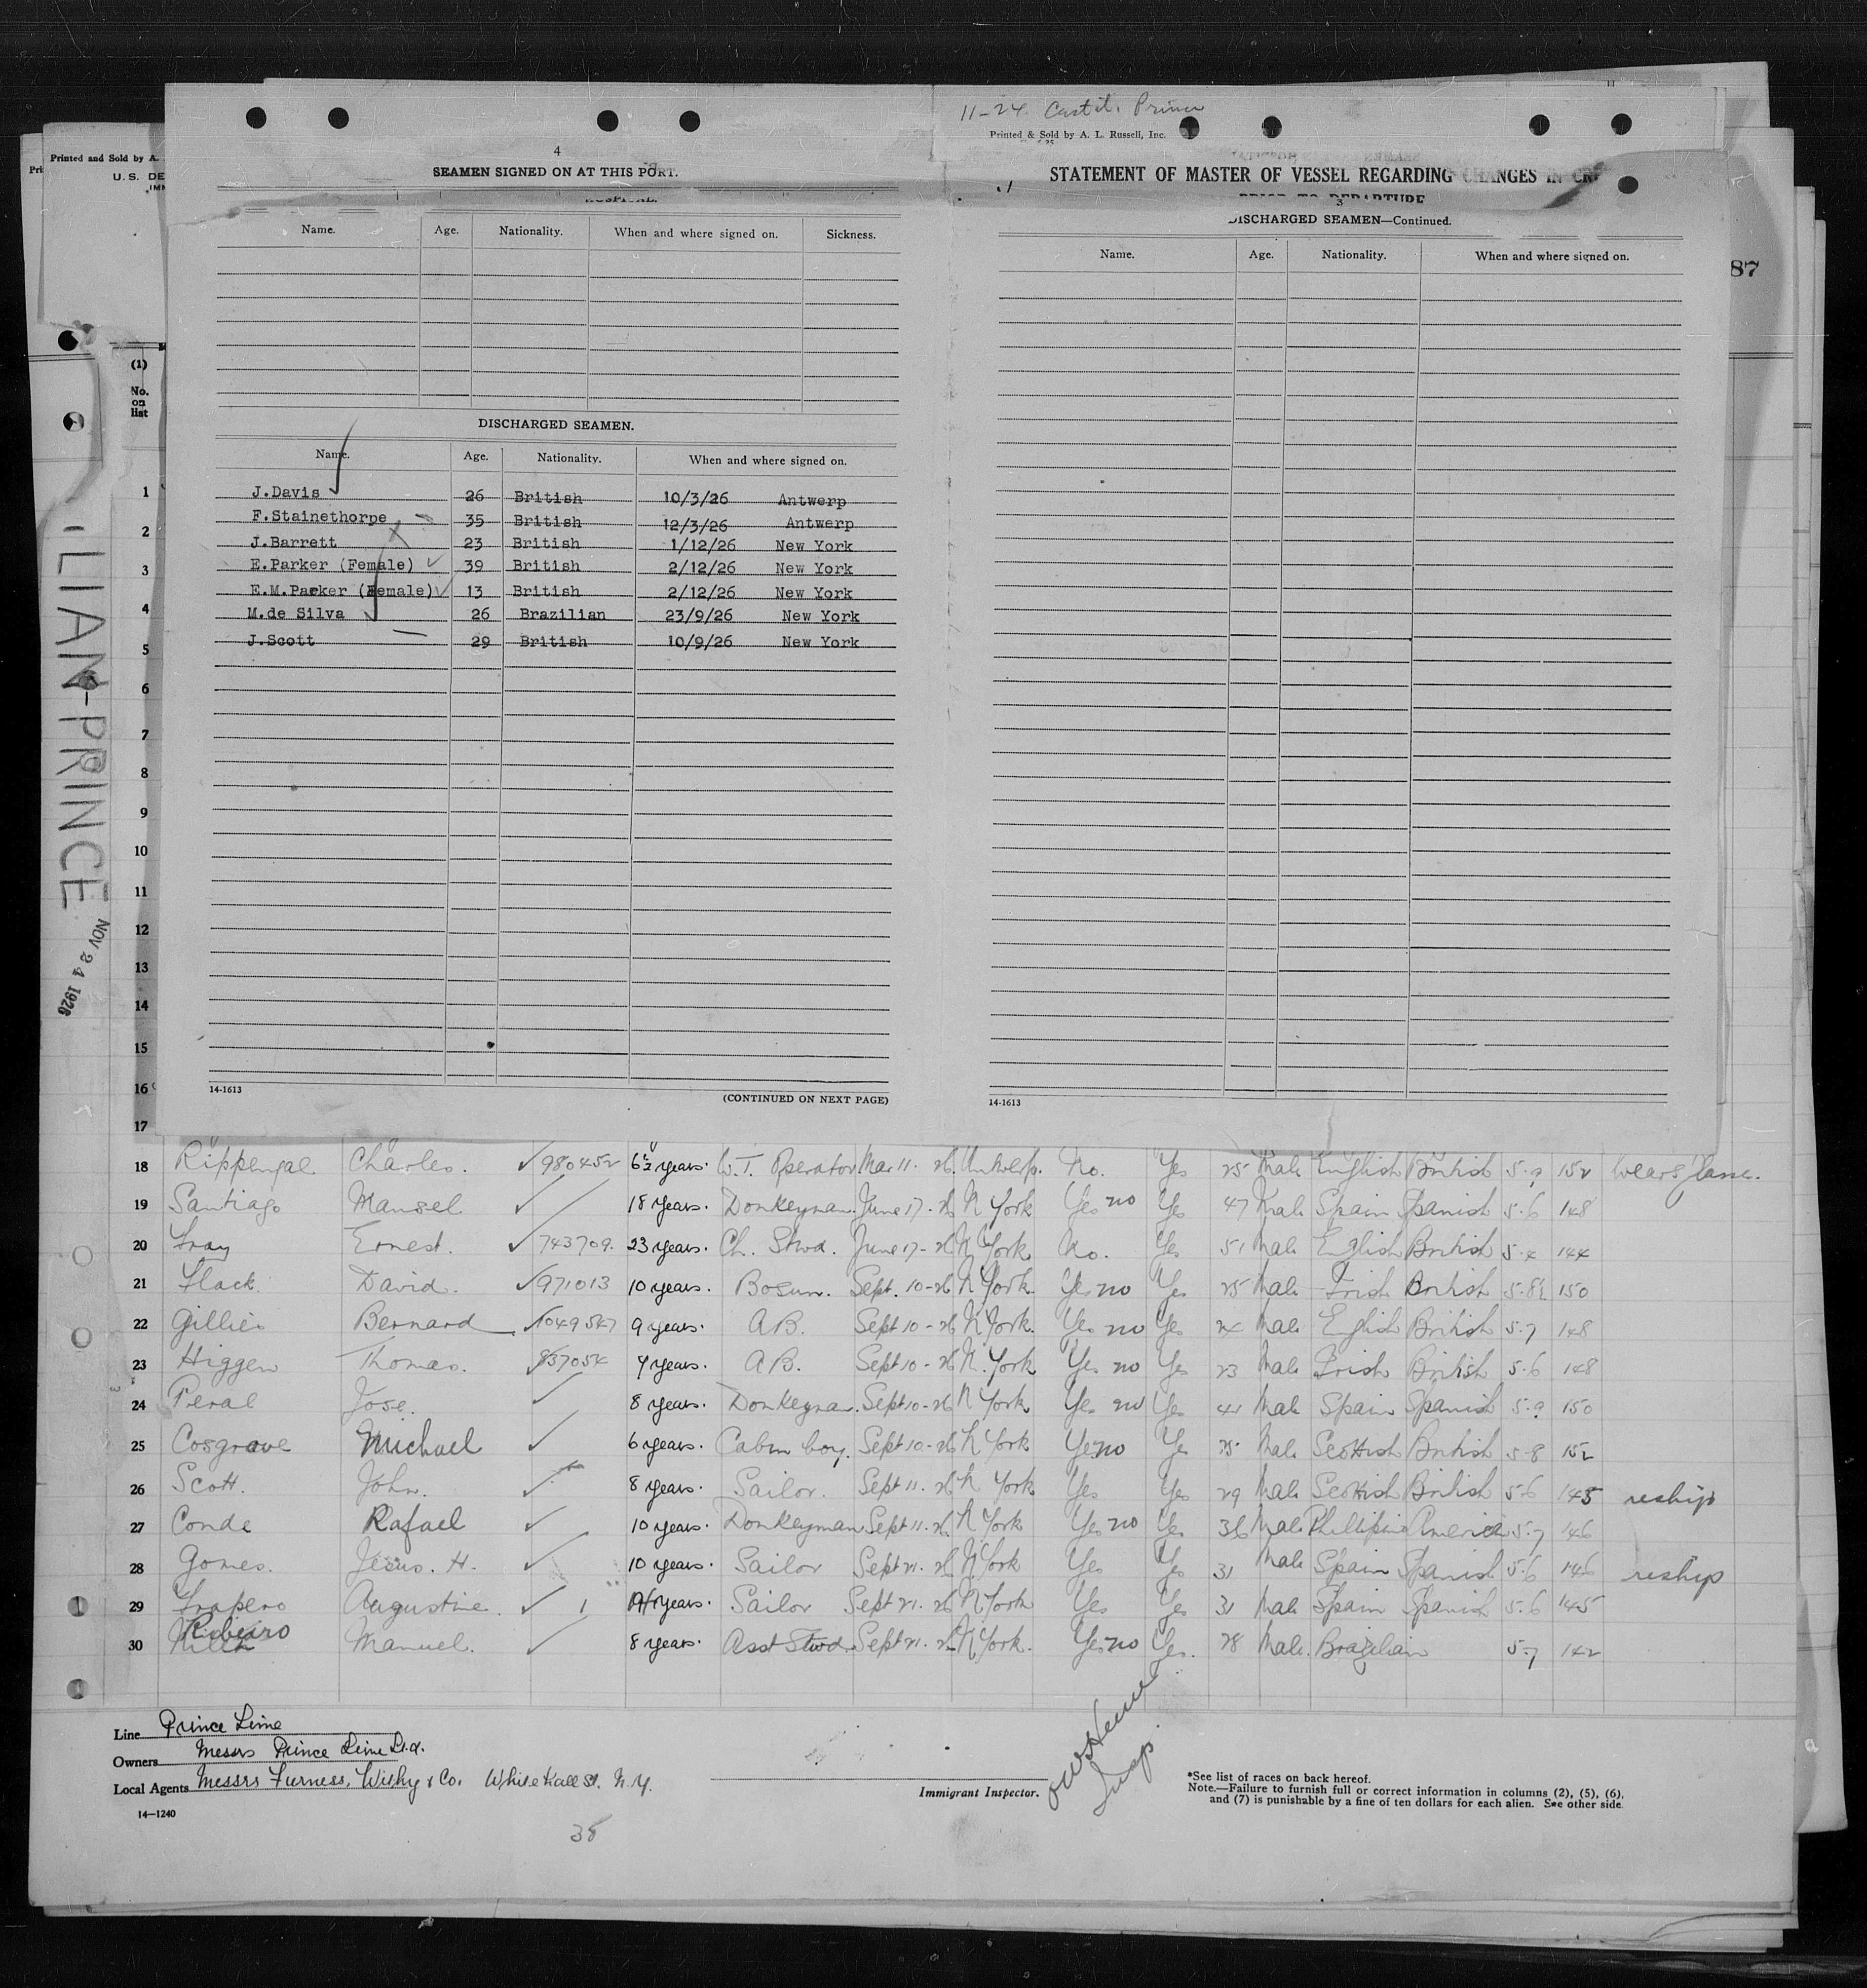 Printed and Sold by A.
U. S. DE
(1)
No.
on
list
87
ILIAN-PRINCE
NOV 24 1926
4
SEAMEN SIGNED ON AT THIS PORT.
HOSPITAL.
Name. Age. Nationality. When and where signed on. Sickness.
DISCHARGED SEAMEN.
Name. Age. Nationality. When and where signed on.
J.Davis 26 British 10/3/26 Antwerp
F.Stainethorpe 35 British 12/3/26 Antwerp
J.Barrett 23 British 1/12/26 New York
E.Parker (Female) 39 British 2/12/26 New York
E.M.Parker (Female) 13 British 2/12/26 New York
M.de Silva 26 Brazilian 23/9/26 New York
J.Scott 29 British 10/9/26 New York
14-1613
(CONTINUED ON NEXT PAGE)
11-24 Prince
Printed & Sold by A. L. Russell, Inc.
STATEMENT OF MASTER OF VESSEL REGARDING CHANGES IN CRE
PRIOR TO DEPARTURE
3
DISCHARGED SEAMEN—Continued.
Name. Age. Nationality. When and where signed on.
14-1613
1
2
3
4
5
6
7
8
9
10
11
12
13
14
15
16
17
18 Rippengal. Charles. 980452 6½ years. W.T. Operator Mar 11. 26 Antwerp. No. Yes 25 Male English British 5.9 152 Wears glasse.
19 Santiago Manuel. 18 years. Donkeyman. June 17-26 N York Yes no Yes 47 Male Spain Spanish 5.6 148
20 Ernest. 743709. 23 years. Ch. Stwd. June 17-26 N York No. Yes 51 Male English British 5.4 144
21 Flack. David. 971013 10 years. Bosun. Sept. 10-26 N York. Yes no Yes 25 Male Irish British 5.8½ 150
22 Gillies Bernard 1049547 9 years. A.B. Sept 10-26 N York. Yes no Yes 24 Male English British 5.7 148
23 Higgen Thomas. 937054 4 years. A.B. Sept 10-26 N. York Yes no Yes 23 Male Irish British 5.6 148
24 Peral Jose. 8 years. Donkeyman. Sept 10-26 N York Yes no Yes 41 Male Spain Spanish 5.9 150
25 Cosgrave Michael 6 years. Cabin boy. Sept 10-26 N York Yes no Yes 25 Male Scottish British 5.8 152
26 Scott. John. 8 years. Sailor. Sept 11. 26 N York Yes Yes 29 Male Scottish British 5.6 145 reships
27 Conde Rafael 10 years. Donkeyman Sept 11. 26 N York Yes no Yes 36 Male Phillipine America 5.7 146
28 Gomes. Jesus. H. 10 years. Sailor Sept 21. 26 N York Yes Yes 31 Male Spain Spanish 5.6 146 reships
29 Trapero Augustine. years. Sailor Sept 21. 26 N York Yes Yes 31 Male Spain Spanish 5.6 145
30 Ribeiro Manuel. 8 years. Asst Stwd. Sept 21. 26 N York. Yes no Yes. 28 Male. Brazilian 5.7 142
Line Prince Line
Owners Messrs Prince Line Ltd.
Local Agents Messrs Furness, Withy & Co. Whitehall St. N.Y.
14—1240
38
Immigrant Inspector.
Insp
*See list of races on back hereof.
Note.—Failure to furnish full or correct information in columns (2), (5), (6),
and (7) is punishable by a fine of ten dollars for each alien. See other side.